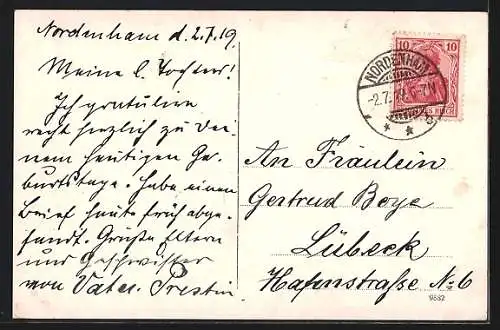 Nordenham d. 2.7.19.
Meine l. Tochter!
Ich gratuliere
recht herzlich zu Dei-
nem heutigen Ge-
burtstage. Habe einen
Brief heute früh abge-
sandt. Grüße Eltern
und Geschwister
von Vater
10 10
NORDENHAM
-2.7. 6-7N
An Fräulein
Gertrud Boye
Lübeck
Hafenstraße No 6
9882